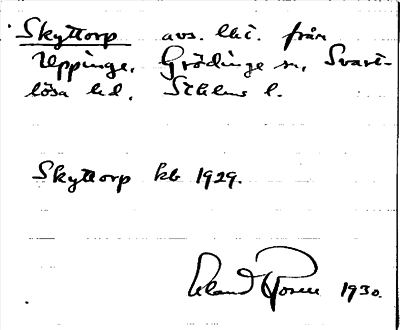 Skyttorp avs. lht. från
Uppinge, Grödinge sn, Svart-
lösa hd. Sthlms l.
Skyttorp kb 1929.
Erland Rosell 1930.